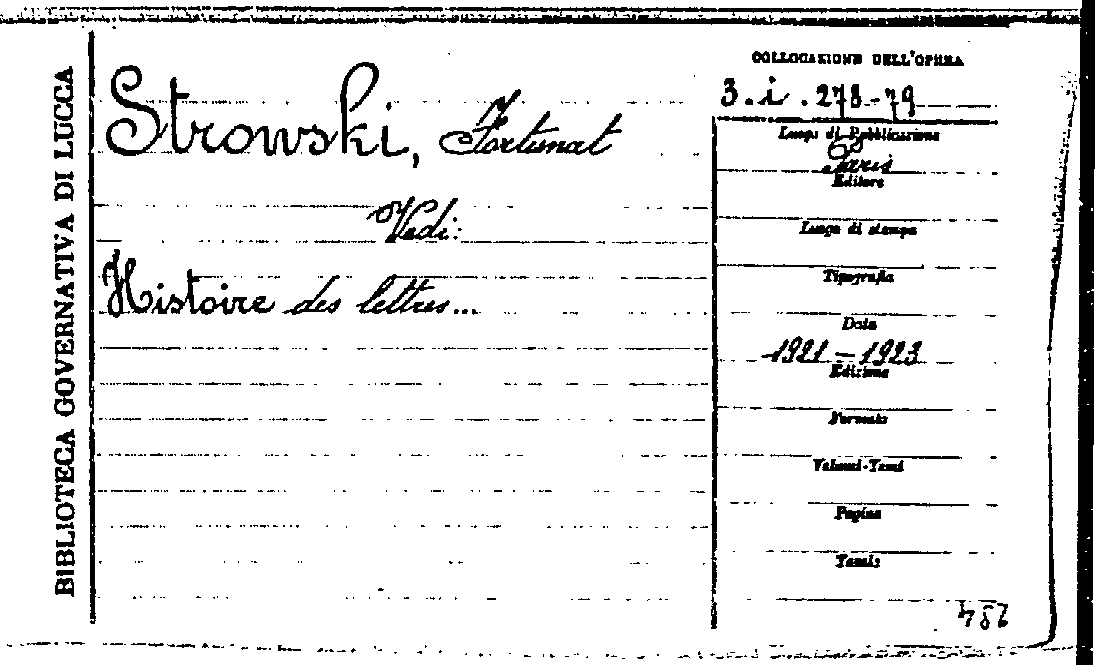 BIBLIOTECA GOVERNATIVA DI LUCCA
Strowski, Fortunat
Vedi:
Histoire des lettres...
COLLOCAZIONE DELL'OPERA
3.i.278-79
Luogo di Pubblicazione
Paris
Editore
Luogo di stampa
Tipografia
Data
1921-1923
Edizione
Formato
Volumi-Tomi
Pagine